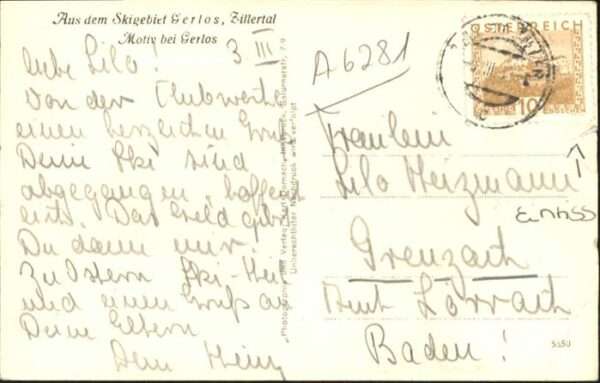 Aus dem Skigebiet Gerlos, Zillertal
Motiv bei Gerlos
3 III
Liebe Lilo!
Von der Clubwerte
einen herzlichen Gruß
Deine Ski sind
abgegangen, hoffen
Das Geld
Du dann mir.
Zu Ostern Ski-Heil
und einen Gruß an
Deine Eltern
Dein Heinz
Photographie und Verlag
Unberechtigter Nachdruck wird verfolgt
A6281
ÖSTERREICH
10
Fräulein
Lilo Heizmann
Grenzach
Amt Lörrach
Baden!
5550